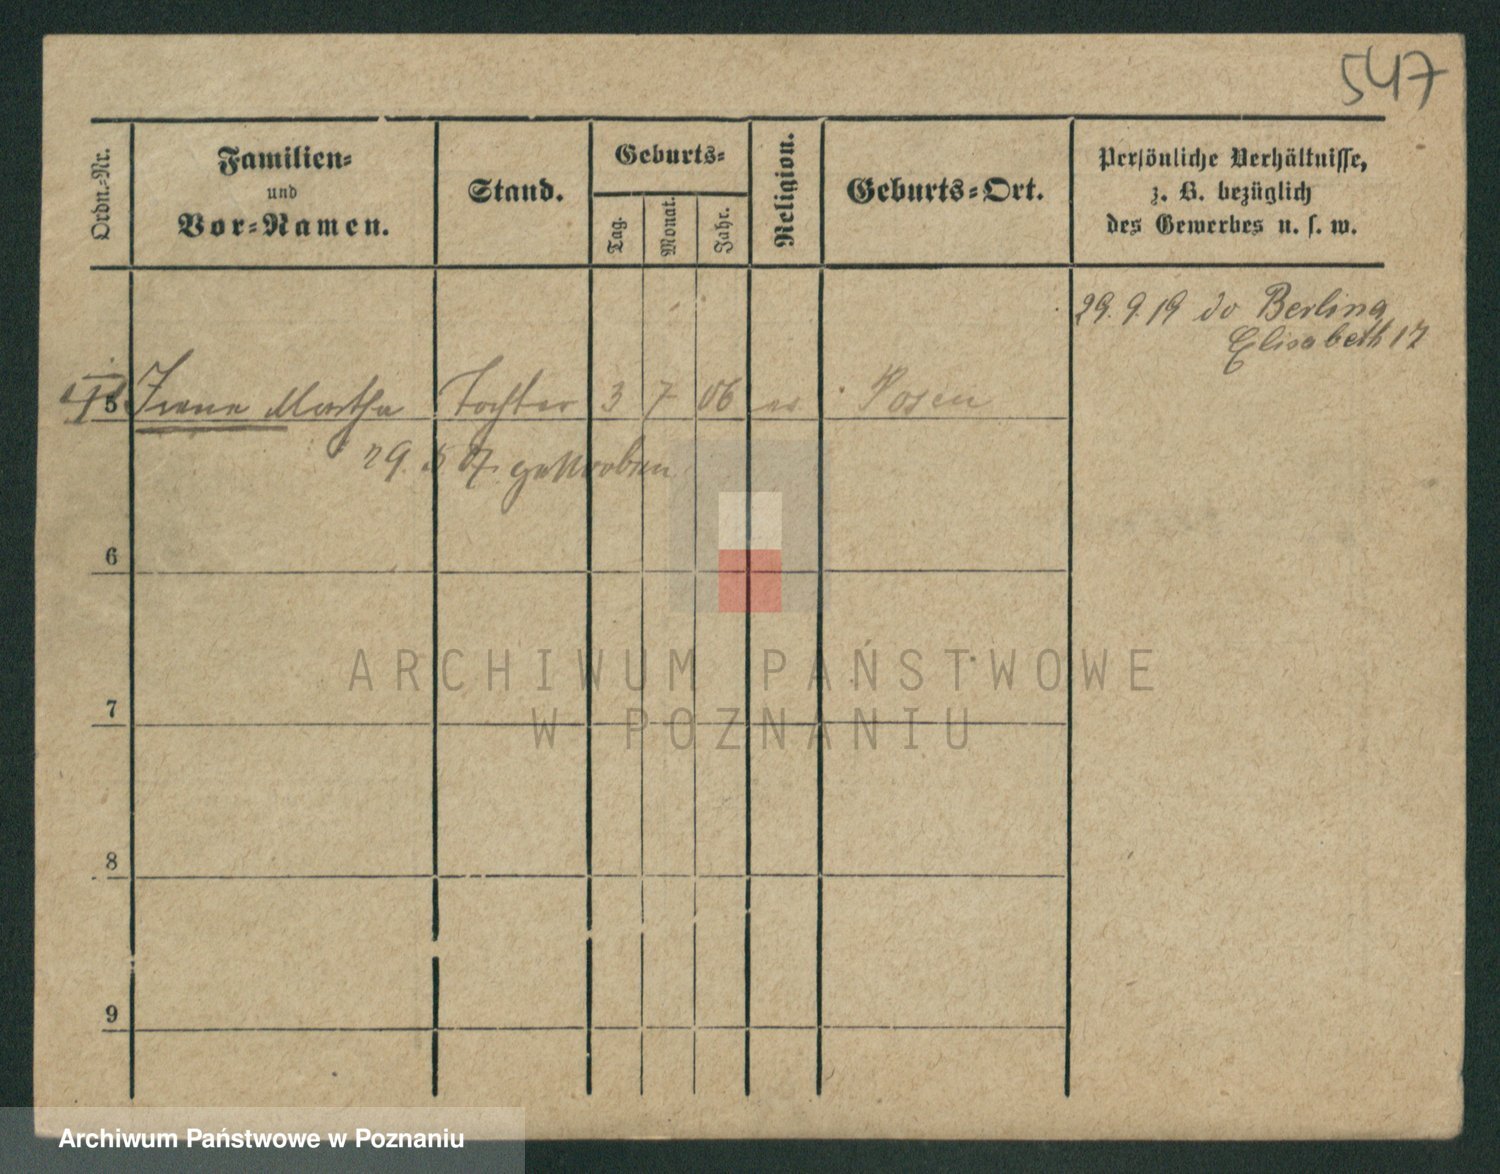 547
Ordn.-Nr.
Familien-
und
Vor-Namen.
Stand.
Geburts-
Tag.
Monat.
Jahr.
Religion.
Geburts-Ort.
Persönliche Verhältnisse,
z. B. bezüglich
des Gewerbes u. s. w.
29. 9. 19 do Berlina
Elisabeth 17
5 Irene Martha Tochter 3 7 06 ev Posen
29. 5 07. gestorben
6
7
8
9
ARCHIWUM PAŃSTWOWE
W POZNANIU
Archiwum Państwowe w Poznaniu